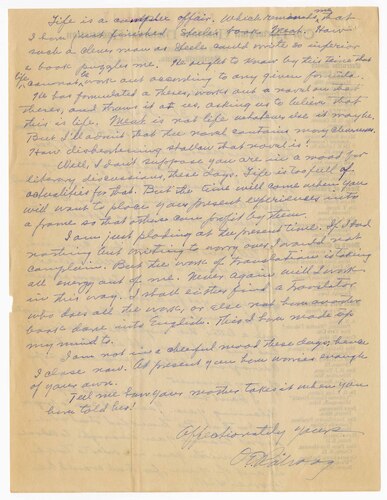 Life is a complex affair. Which reminds me that
I have just finished Steele's book Meat. How
such a clever man as Steele could write so inferior
a book puzzles me. He ought to know by this time that
life cannot be work out according to any given formula.
He has formulated a thesis, works out a novel on that
thesis, and throws it at us, asking us to believe that
this is life. Meat is not life whatever else it may be.
But I'll admit that the novel contains many cleverness.
How disheartening shallow that novel is!
Well, I don't suppose you are in a mood for
literary discussions, these days. Life is too full of
actualities for that. But the time will come when you
will want to place your present experiences into
a frame so that others can profit by them.
I am just plodding at the present time. If I had
nothing but writing to worry over, I would not
complain. But the work of translation is taking
all energy out of me. Never again will I work
in this way. I shall either find a translator
who does all the work, or else not have another
book done into English. This I have made up
my mind to.
I am not in a cheerful mood these days, hence
I close now. At present you have worries enough
of your own.
Tell me how your mother takes it when you
have told her!
Affectionately yours